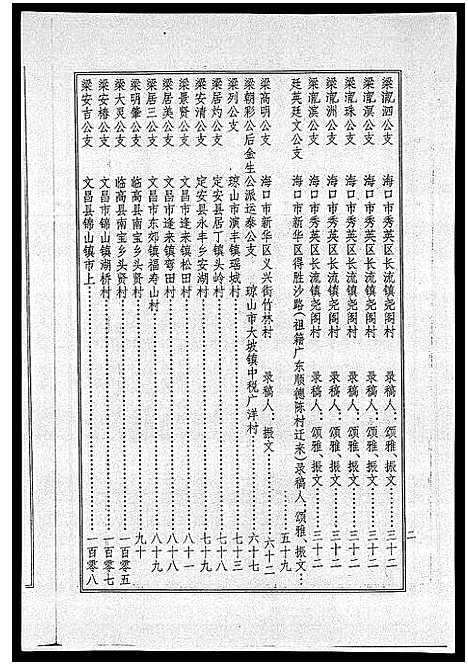 梁漉泗公支 海口市秀英区长流镇尧阁村 录稿人：颂雅、振文……三十二
梁漉溟公支 海口市秀英区长流镇尧阁村 录稿人：颂雅、振文……三十二
梁漉珠公支 海口市秀英区长流镇尧阁村 录稿人：颂雅、振文……三十二
梁漉洲公支 海口市秀英区长流镇尧阁村 录稿人：颂雅、振文……三十二
梁漉滨公支 海口市秀英区长流镇尧阁村 录稿人：颂雅、振文……三十二
廷英廷文公支 海口市新华区得胜沙路（祖籍广东顺德陈村迁来）录稿人：颂雅、振文…
五十九
梁高明公支 海口市新华区义兴街竹林村 录稿人：振文……六十二
梁朝彩公后金生公派运泰公支 琼山市大坡镇中税广洋村……六十七
梁列公支 琼山市演丰镇瑶城村……七十三
梁居灼公支 定安县居丁镇头岭村……七十八
梁安清公支 定安县永丰乡安湖村……七十九
梁景贤公支 文昌市蓬来镇松田村……八十一
梁居美公支 文昌市蓬来镇弯田村……八十八
梁居三公支 文昌市东郊镇福寿山村……八十九
梁明肇公支 临高县南宝乡头贤村……九十
梁大灵公支 临高县南宝乡头贤村……一百零五
梁安椿公支 文昌县锦山镇湖桥村……一百零七
梁安吉公支 文昌县锦山镇市上……一百零八
二